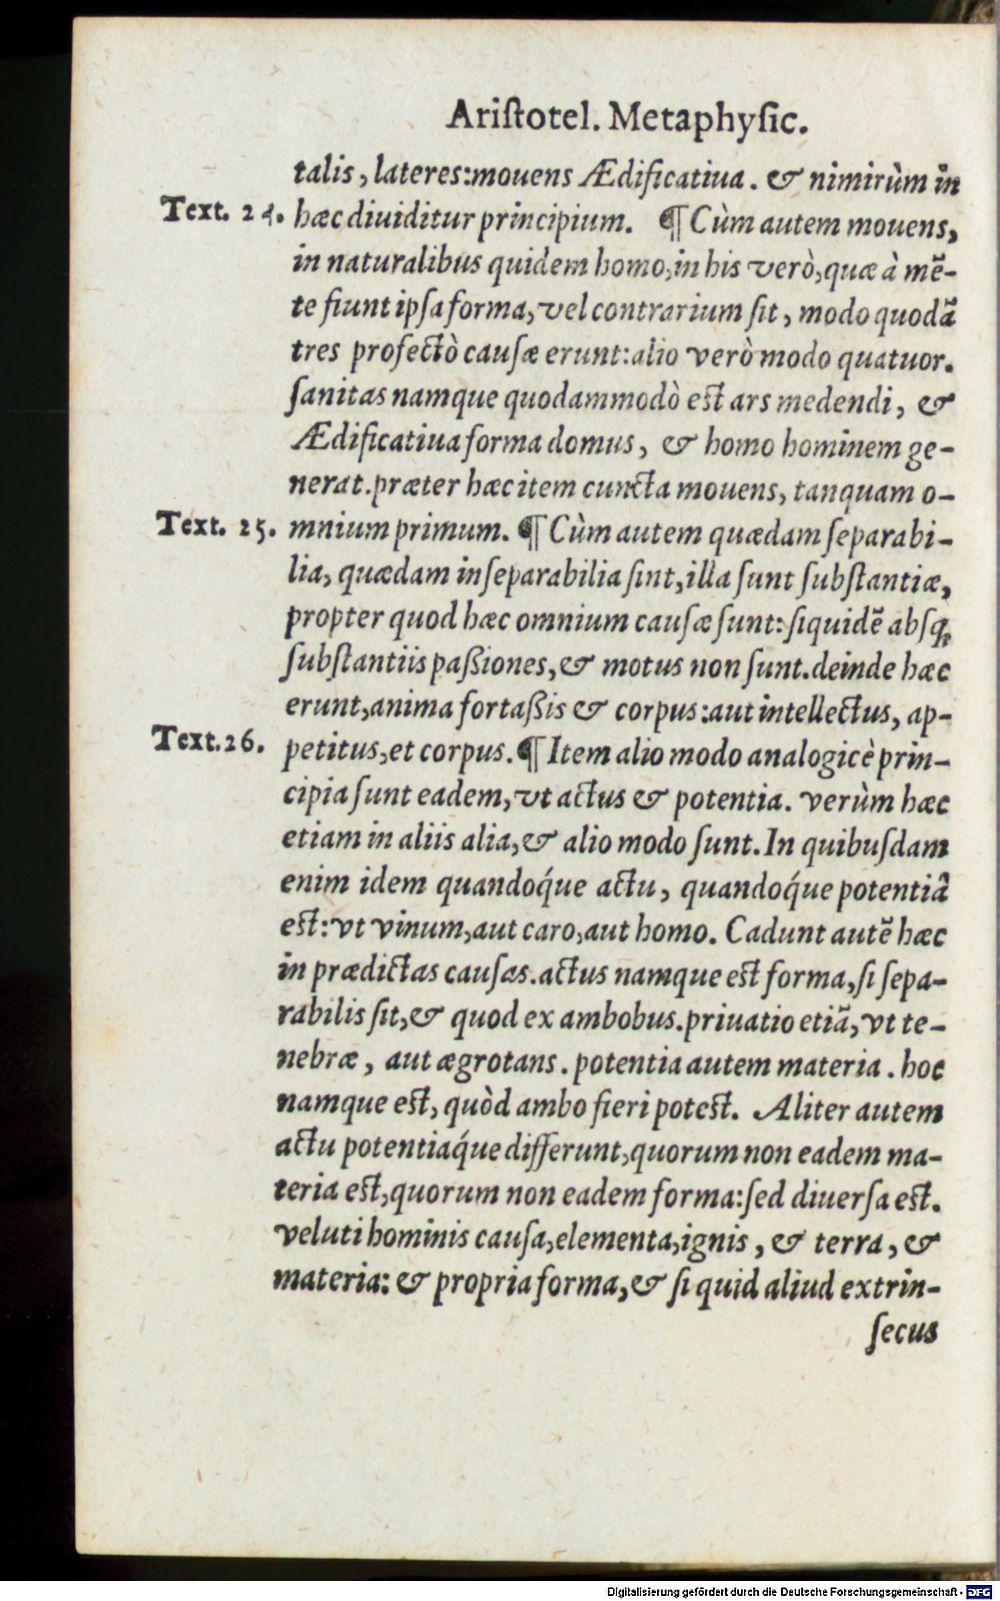 Ariſtotel. Metaphyſic.
talis, lateres: mouens Ædificatiua. & nimirùm in
Text. 24. hæc diuiditur principium. ¶ Cùm autem mouens,
in naturalibus quidem homo, in his verò, quæ à mē-
te fiunt ipſa forma, vel contrarium ſit, modo quodã
tres profectò cauſæ erunt: alio verò modo quatuor.
ſanitas namque quodammodò eſt ars medendi, &
Ædificatiua forma domus, & homo hominem ge-
nerat. præter hæc item cuncta mouens, tanquam o-
Text. 25. mnium primum. ¶ Cùm autem quædam ſeparabi-
lia, quædam inſeparabilia ſint, illa ſunt ſubſtantiæ,
propter quod hæc omnium cauſæ ſunt: ſiquidē abſq;
ſubſtantiis paßiones, & motus non ſunt. deinde hæc
erunt, anima fortaßis & corpus: aut intellectus, ap-
Text. 26. petitus, et corpus. ¶ Item alio modo analogicè prin-
cipia ſunt eadem, vt actus & potentia. verùm hæc
etiam in aliis alia, & alio modo ſunt. In quibuſdam
enim idem quandoq́ue actu, quandoq́ue potentiâ
eſt: vt vinum, aut caro, aut homo. Cadunt autē hæc
in prædictas cauſas. actus namque eſt forma, ſi ſepa-
rabilis ſit, & quod ex ambobus. priuatio etiã, vt te-
nebræ, aut ægrotans. potentia autem materia. hoc
namque eſt, quòd ambo fieri poteſt. Aliter autem
actu potentiaq́ue differunt, quorum non eadem ma-
teria eſt, quorum non eadem forma: ſed diuerſa eſt.
veluti hominis cauſa, elementa, ignis, & terra, &
materia: & propria forma, & ſi quid aliud extrin-
ſecus
Digitalisierung gefördert durch die Deutsche Forschungsgemeinschaft - DFG